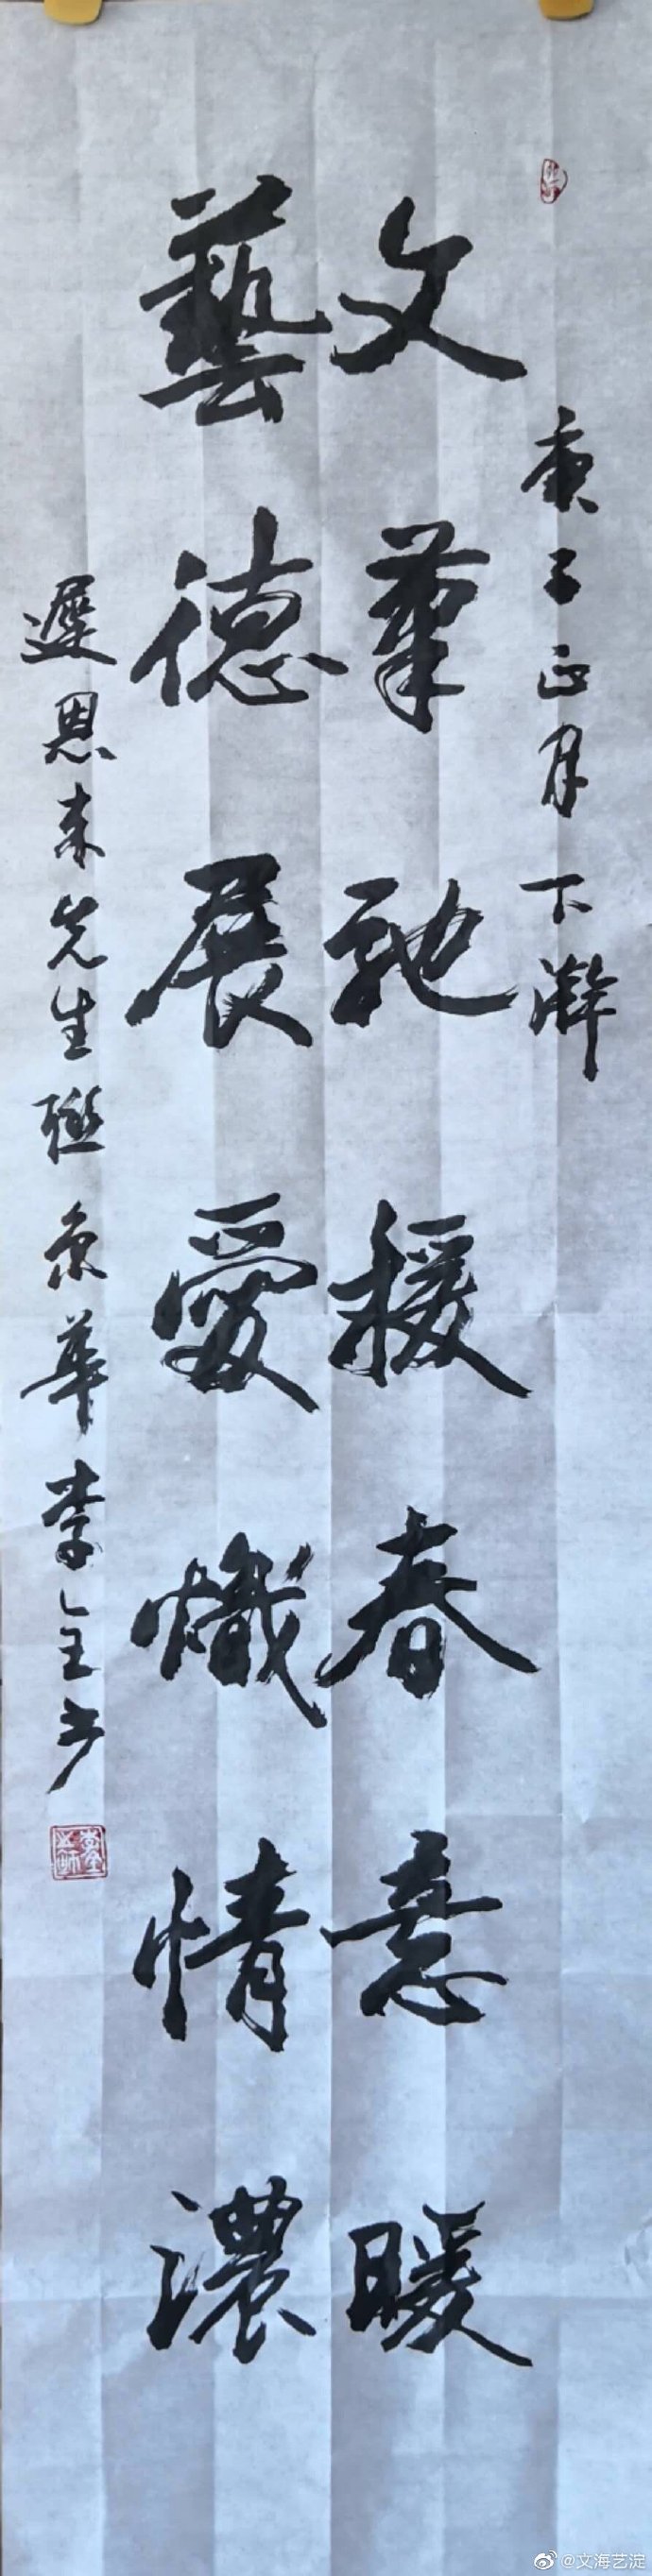 庚子正月下澣
文筆馳援春意暖
藝德展愛熾情濃
遲恩来先生聯京華李全书
@文海艺淀